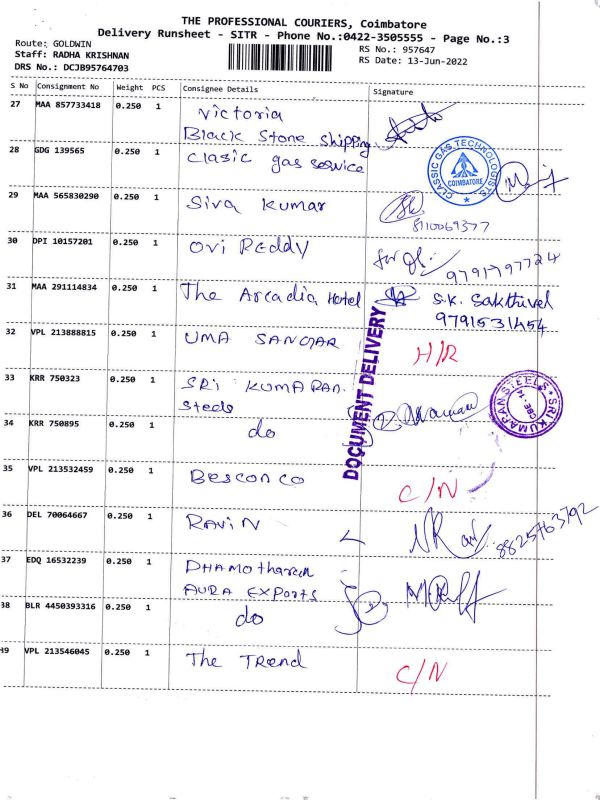 THE PROFESSIONAL COURIERS, Coimbatore
Delivery Runsheet - SITR - Phone No.:0422-3505555 - Page No.:3
Route: GOLDWIN
RS No.: 957647
Staff: RADHA KRISHNAN
RS Date: 13-Jun-2022
DRS No.: DCJB95764703
S No Consignment No Weight PCS Consignee Details Signature
27 MAA 857733418 0.250 1 Victoria
Black Stone Shipping
28 GDG 139565 0.250 1 Clasic gas service
CLASSIC GAS TECHNOLOGISTS
COIMBATORE
29 MAA 565830290 0.250 1 Siva Kumar
8110069377
30 DPI 10157201 0.250 1 Ovi Reddy for
9791797724
31 MAA 291114834 0.250 1 The Arcadia Hotel S.K. Sakthivel
9791531454
32 VPL 213888815 0.250 1 UMA H/R
DOCUMENT DELIVERY
33 KRR 750323 0.250 1 SRI KUMARAN
Steels
SRI KUMARAN STEELS
CBE - 14
34 KRR 750895 0.250 1 do
35 VPL 213532459 0.250 1 Besconco C/N
36 DEL 70064667 0.250 1 RAVI N
8825763792
37 EDQ 16532239 0.250 1 DHAMOtharan
AURA EXPorts
38 BLR 4450393316 0.250 1 do
39 VPL 213546045 0.250 1 The Trend C/N